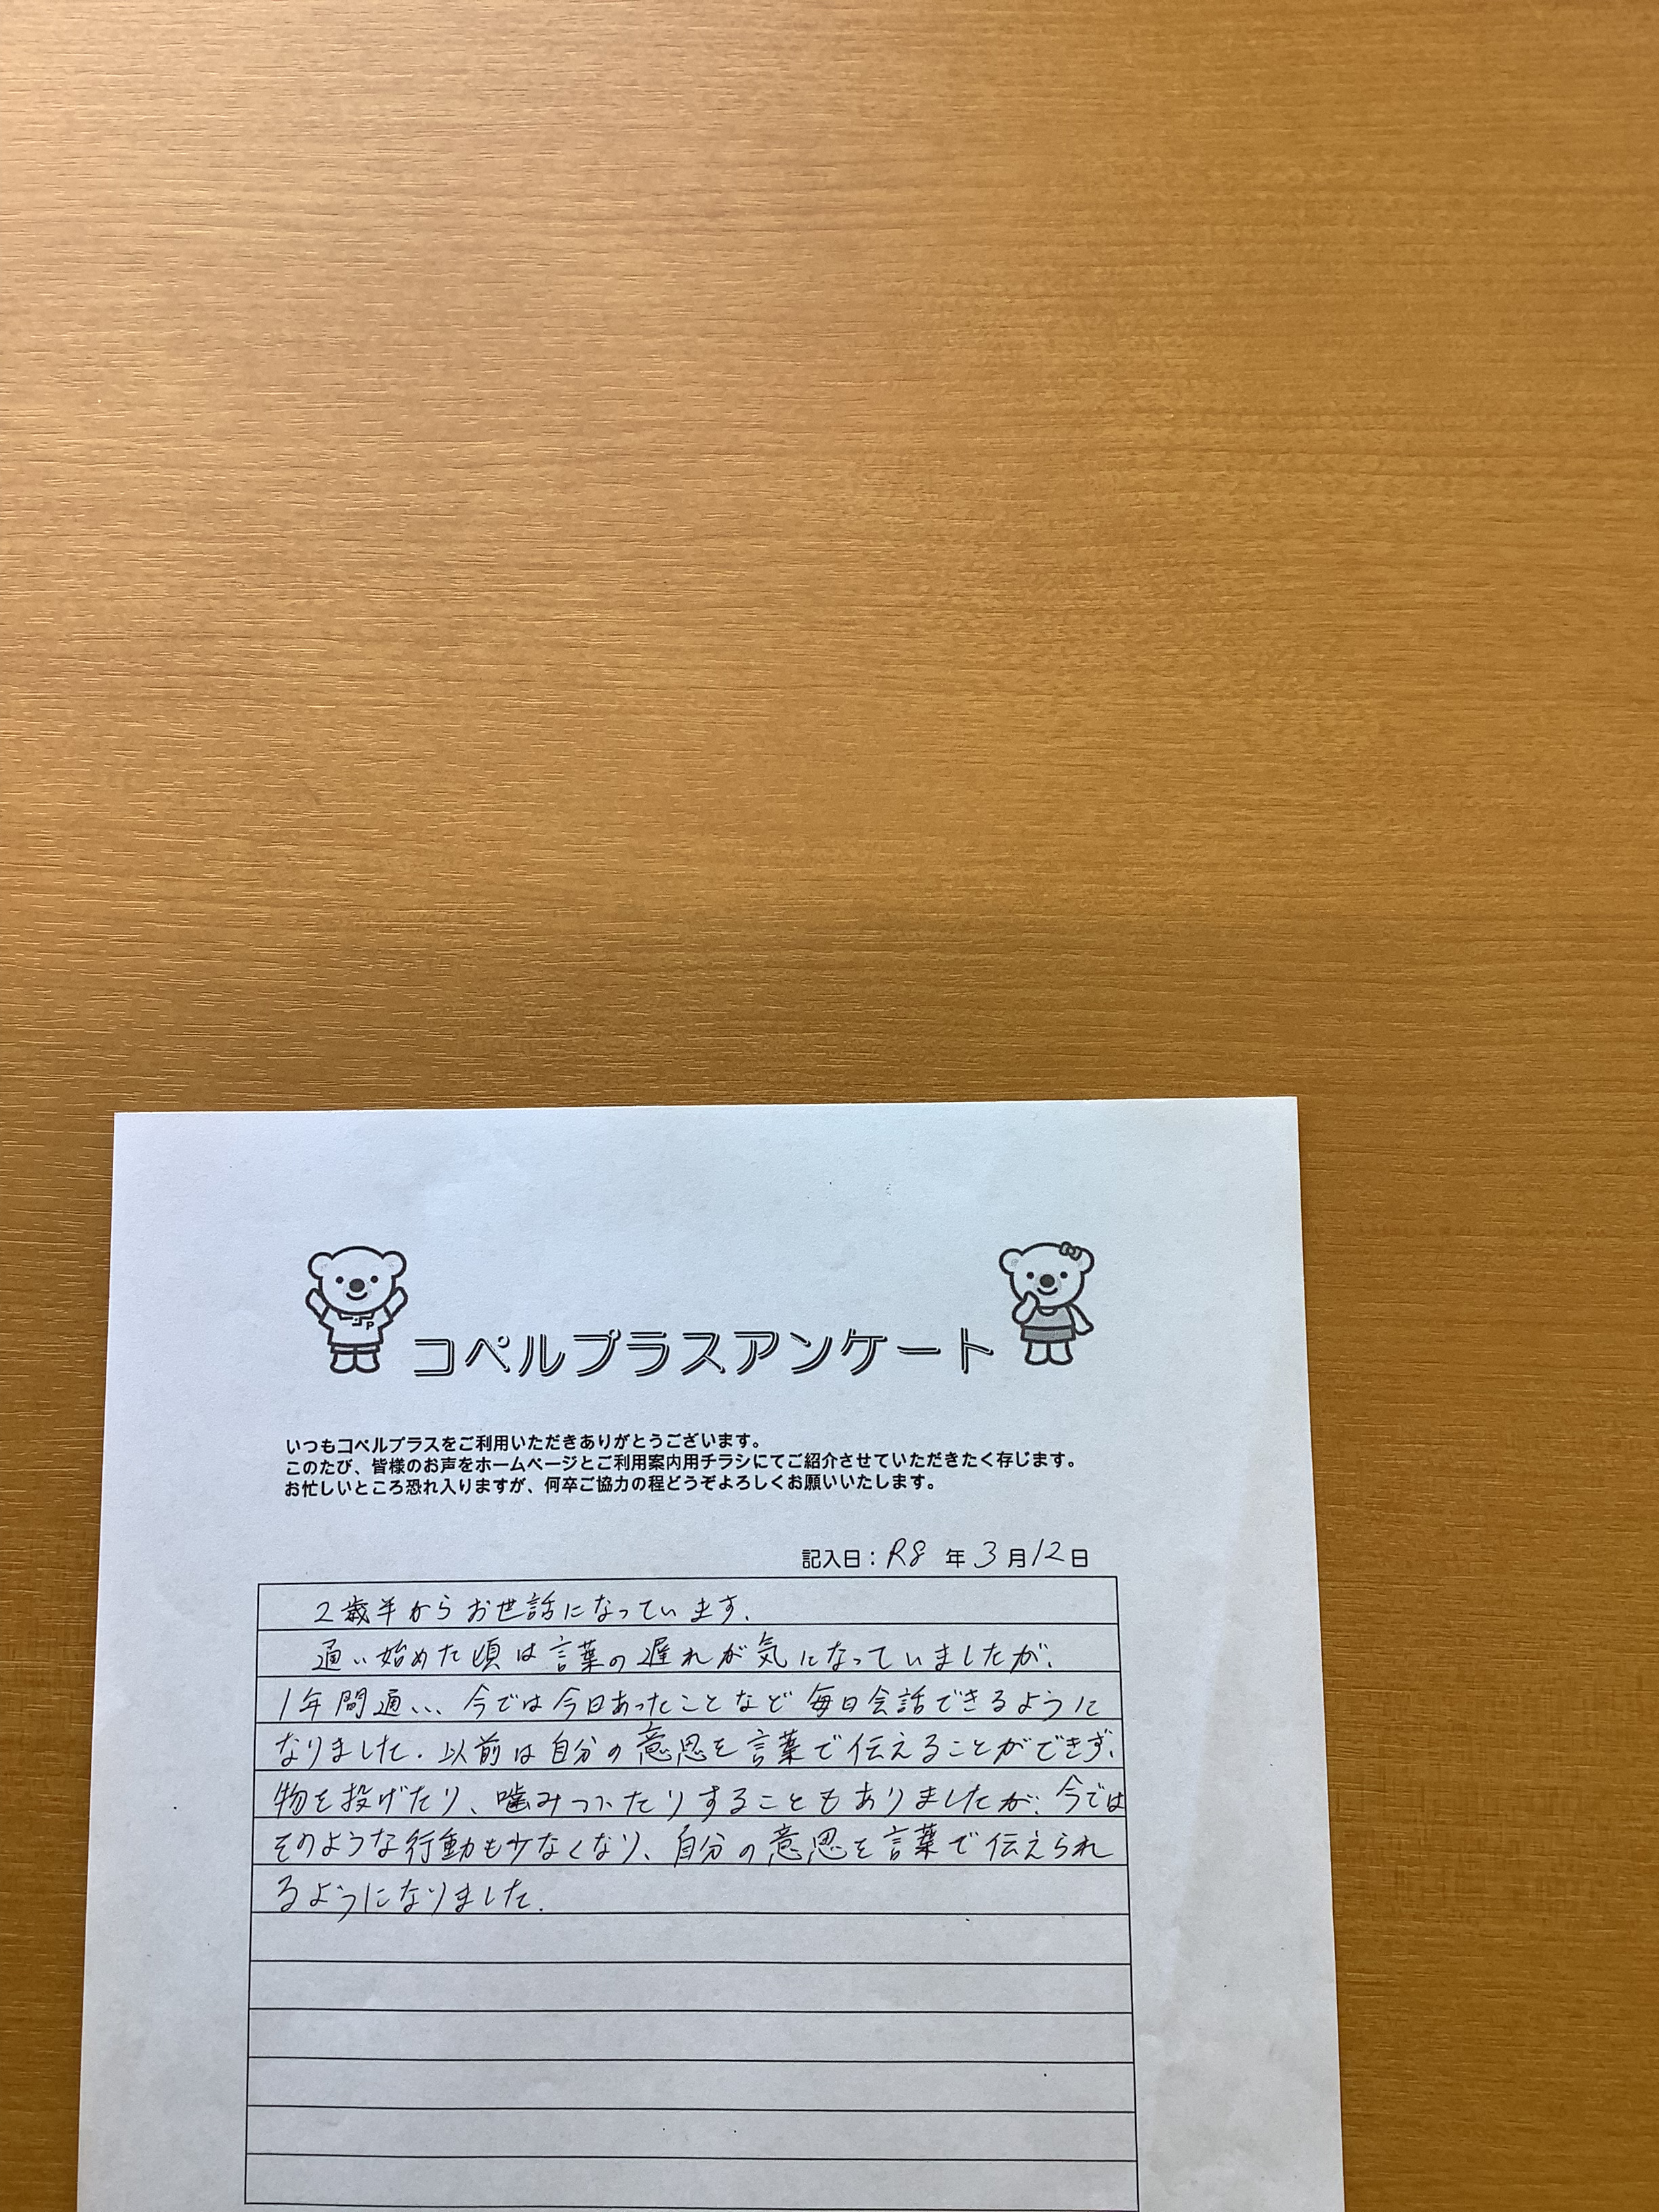 コペルプラスアンケート
いつもコペルプラスをご利用いただきありがとうございます。
このたび、皆様のお声をホームページとご利用案内用チラシにてご紹介させていただきたく存じます。
お忙しいところ恐れ入りますが、何卒ご協力の程どうぞよろしくお願いいたします。
記入日：R8 年 3 月 12 日
2歳半からお世話になっています。
通い始めた頃は言葉の遅れが気になっていましたが、
1年間通い、今では今日あったことなど毎日会話できるように
なりました。以前は自分の意思を言葉で伝えることができず、
物を投げたり、噛みついたりすることもありましたが、今では
そのような行動も少なくなり、自分の意思を言葉で伝えられ
るようになりました。